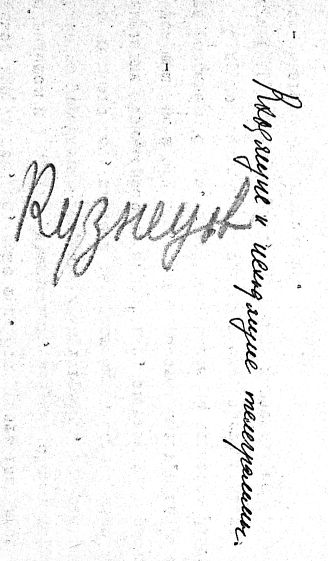 Кузнецов
Входящие и исходящие телеграммы.